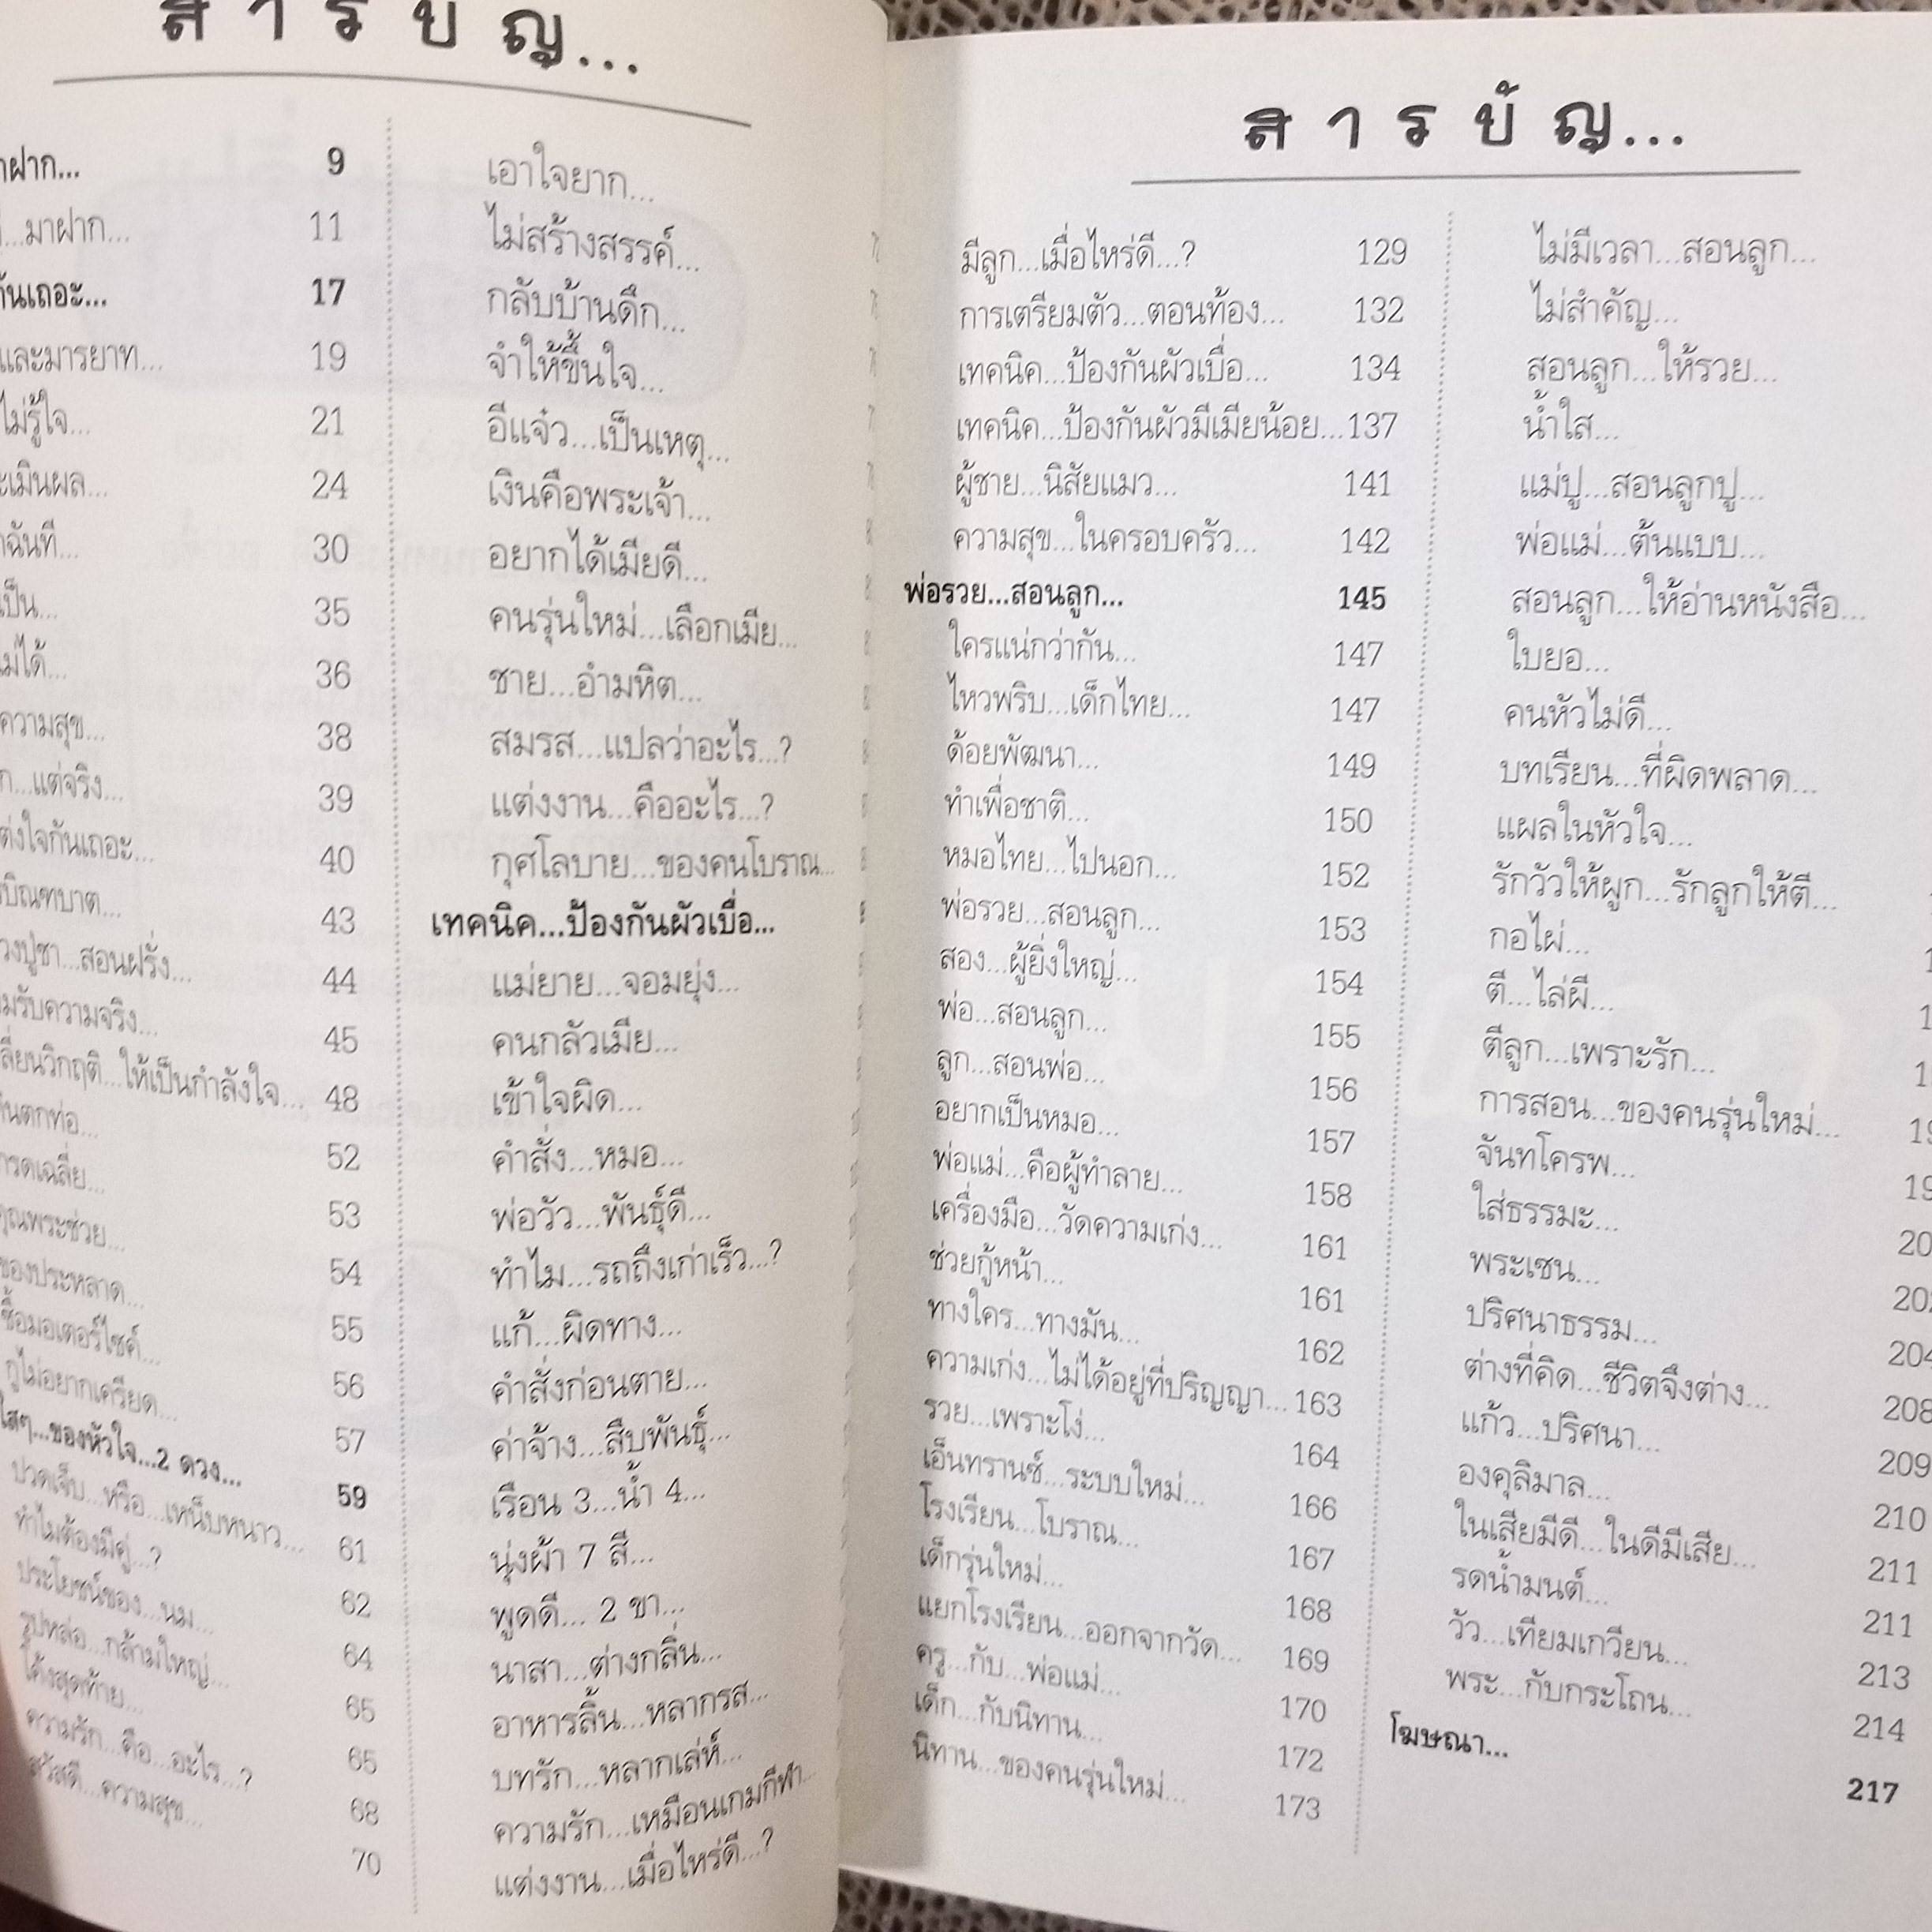 สารบัญ...
าฝาก... 9
...มาฝาก... 11
กันเถอะ... 17
และมารยาท... 19
ไม่รู้ใจ... 21
ะเมินผล... 24
ฉันที... 30
เป็น... 35
ไม่ได้... 36
ความสุข... 38
ก...แต่จริง... 39
ต่งใจกันเถอะ... 40
บิณฑบาต... 43
วงปู่ชา...สอนฝรั่ง... 44
มรับความจริง... 45
ลี่ยนวิกฤติ...ให้เป็นกำลังใจ... 48
ตกท่อ... 52
กรดเฉลี่ย... 53
คุณพระช่วย... 54
ของประหลาด... 55
ซื้อมอเตอร์ไซค์... 56
กูไม่อยากเครียด... 57
ใสๆ...ของหัวใจ...2 ดวง... 59
ปวดเจ็บ...หรือ...เหน็บหนาว... 61
ทำไมต้องมีคู่...? 62
ประโยชน์ของ...นม... 64
รูปหล่อ...กล้ามใหญ่... 65
โค้งสุดท้าย... 65
ความรัก...คือ...อะไร...? 68
สวัสดี...ความสุข... 70
เอาใจยาก...
ไม่สร้างสรรค์...
กลับบ้านดึก...
จำให้ขึ้นใจ...
อีแจ๋ว...เป็นเหตุ...
เงินคือพระเจ้า...
อยากได้เมียดี...
คนรุ่นใหม่...เลือกเมีย...
ชาย...อำมหิต...
สมรส...แปลว่าอะไร...?
แต่งงาน...คืออะไร...?
กุศโลบาย...ของคนโบราณ...
เทคนิค...ป้องกันผัวเบื่อ...
แม่ยาย...จอมยุ่ง...
คนกลัวเมีย...
เข้าใจผิด...
คำสั่ง...หมอ...
พ่อวัว...พันธุ์ดี...
ทำไม...รถถึงเก่าเร็ว...?
แก้...ผิดทาง...
คำสั่งก่อนตาย...
ค่าจ้าง...สืบพันธุ์...
เรือน 3...น้ำ 4...
นุ่งผ้า 7 สี...
พูดดี... 2 ขา...
นาสา...ต่างกลิ่น...
อาหารลิ้น...หลากรส...
บทรัก...หลากเล่ห์...
ความรัก...เหมือนเกมกีฬา...
แต่งงาน...เมื่อไหร่ดี...?
สารบัญ...
มีลูก...เมื่อไหร่ดี...? 129
การเตรียมตัว...ตอนท้อง... 132
เทคนิค...ป้องกันผัวเบื่อ... 134
เทคนิค...ป้องกันผัวมีเมียน้อย...137
ผู้ชาย...นิสัยแมว... 141
ความสุข...ในครอบครัว... 142
พ่อรวย...สอนลูก... 145
ใครแน่กว่ากัน... 147
ไหวพริบ...เด็กไทย... 147
ด้อยพัฒนา... 149
ทำเพื่อชาติ... 150
หมอไทย...ไปนอก... 152
พ่อรวย...สอนลูก... 153
สอง...ผู้ยิ่งใหญ่... 154
พ่อ...สอนลูก... 155
ลูก...สอนพ่อ... 156
อยากเป็นหมอ... 157
พ่อแม่...คือผู้ทำลาย... 158
เครื่องมือ...วัดความเก่ง... 161
ช่วยกู้หน้า... 161
ทางใคร...ทางมัน... 162
ความเก่ง...ไม่ได้อยู่ที่ปริญญา...163
รวย...เพราะโง่... 164
เอ็นทรานซ์...ระบบใหม่... 166
โรงเรียน...โบราณ... 167
เด็กรุ่นใหม่... 168
แยกโรงเรียน...ออกจากวัด... 169
ครู...กับ...พ่อแม่... 170
เด็ก...กับนิทาน... 172
นิทาน...ของคนรุ่นใหม่... 173
ไม่มีเวลา...สอนลูก...
ไม่สำคัญ...
สอนลูก...ให้รวย...
น้ำใส...
แม่ปู...สอนลูกปู...
พ่อแม่...ต้นแบบ...
สอนลูก...ให้อ่านหนังสือ...
ใบยอ...
คนหัวไม่ดี...
บทเรียน...ที่ผิดพลาด...
แผลในหัวใจ...
รักวัวให้ผูก...รักลูกให้ตี...
กอไผ่...
ตี...ไล่ผี...
ตีลูก...เพราะรัก...
การสอน...ของคนรุ่นใหม่...
จันทโครพ...
ใส่ธรรมะ...
พระเซน...
ปริศนาธรรม... 204
ต่างที่คิด...ชีวิตจึงต่าง... 208
แก้ว...ปริศนา... 209
องคุลิมาล... 210
ในเสียมีดี...ในดีมีเสีย... 211
รดน้ำมนต์... 211
วัว...เทียมเกวียน... 213
พระ...กับกระโถน... 214
โฆษณา... 217